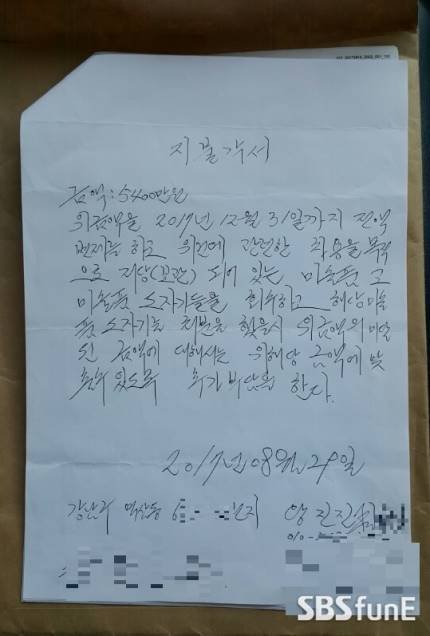 지불각서
금액: 5400만원
위금액을 2017년 12월 31일까지 전액
변제를 하고 위건에 관련한 차용을 목적
으로 저당(보관) 되어 있는 미술품 고
미술품 도자기들을 회수하고 해당미술
품 도자기를 처분을 했을시 위금액의
금액에 대해서는 위해당 금액에 맞
출수 있도록 추가 한다.
2017년 08월 29일
강남구 역삼동 6 번지 양진
SBSfunE